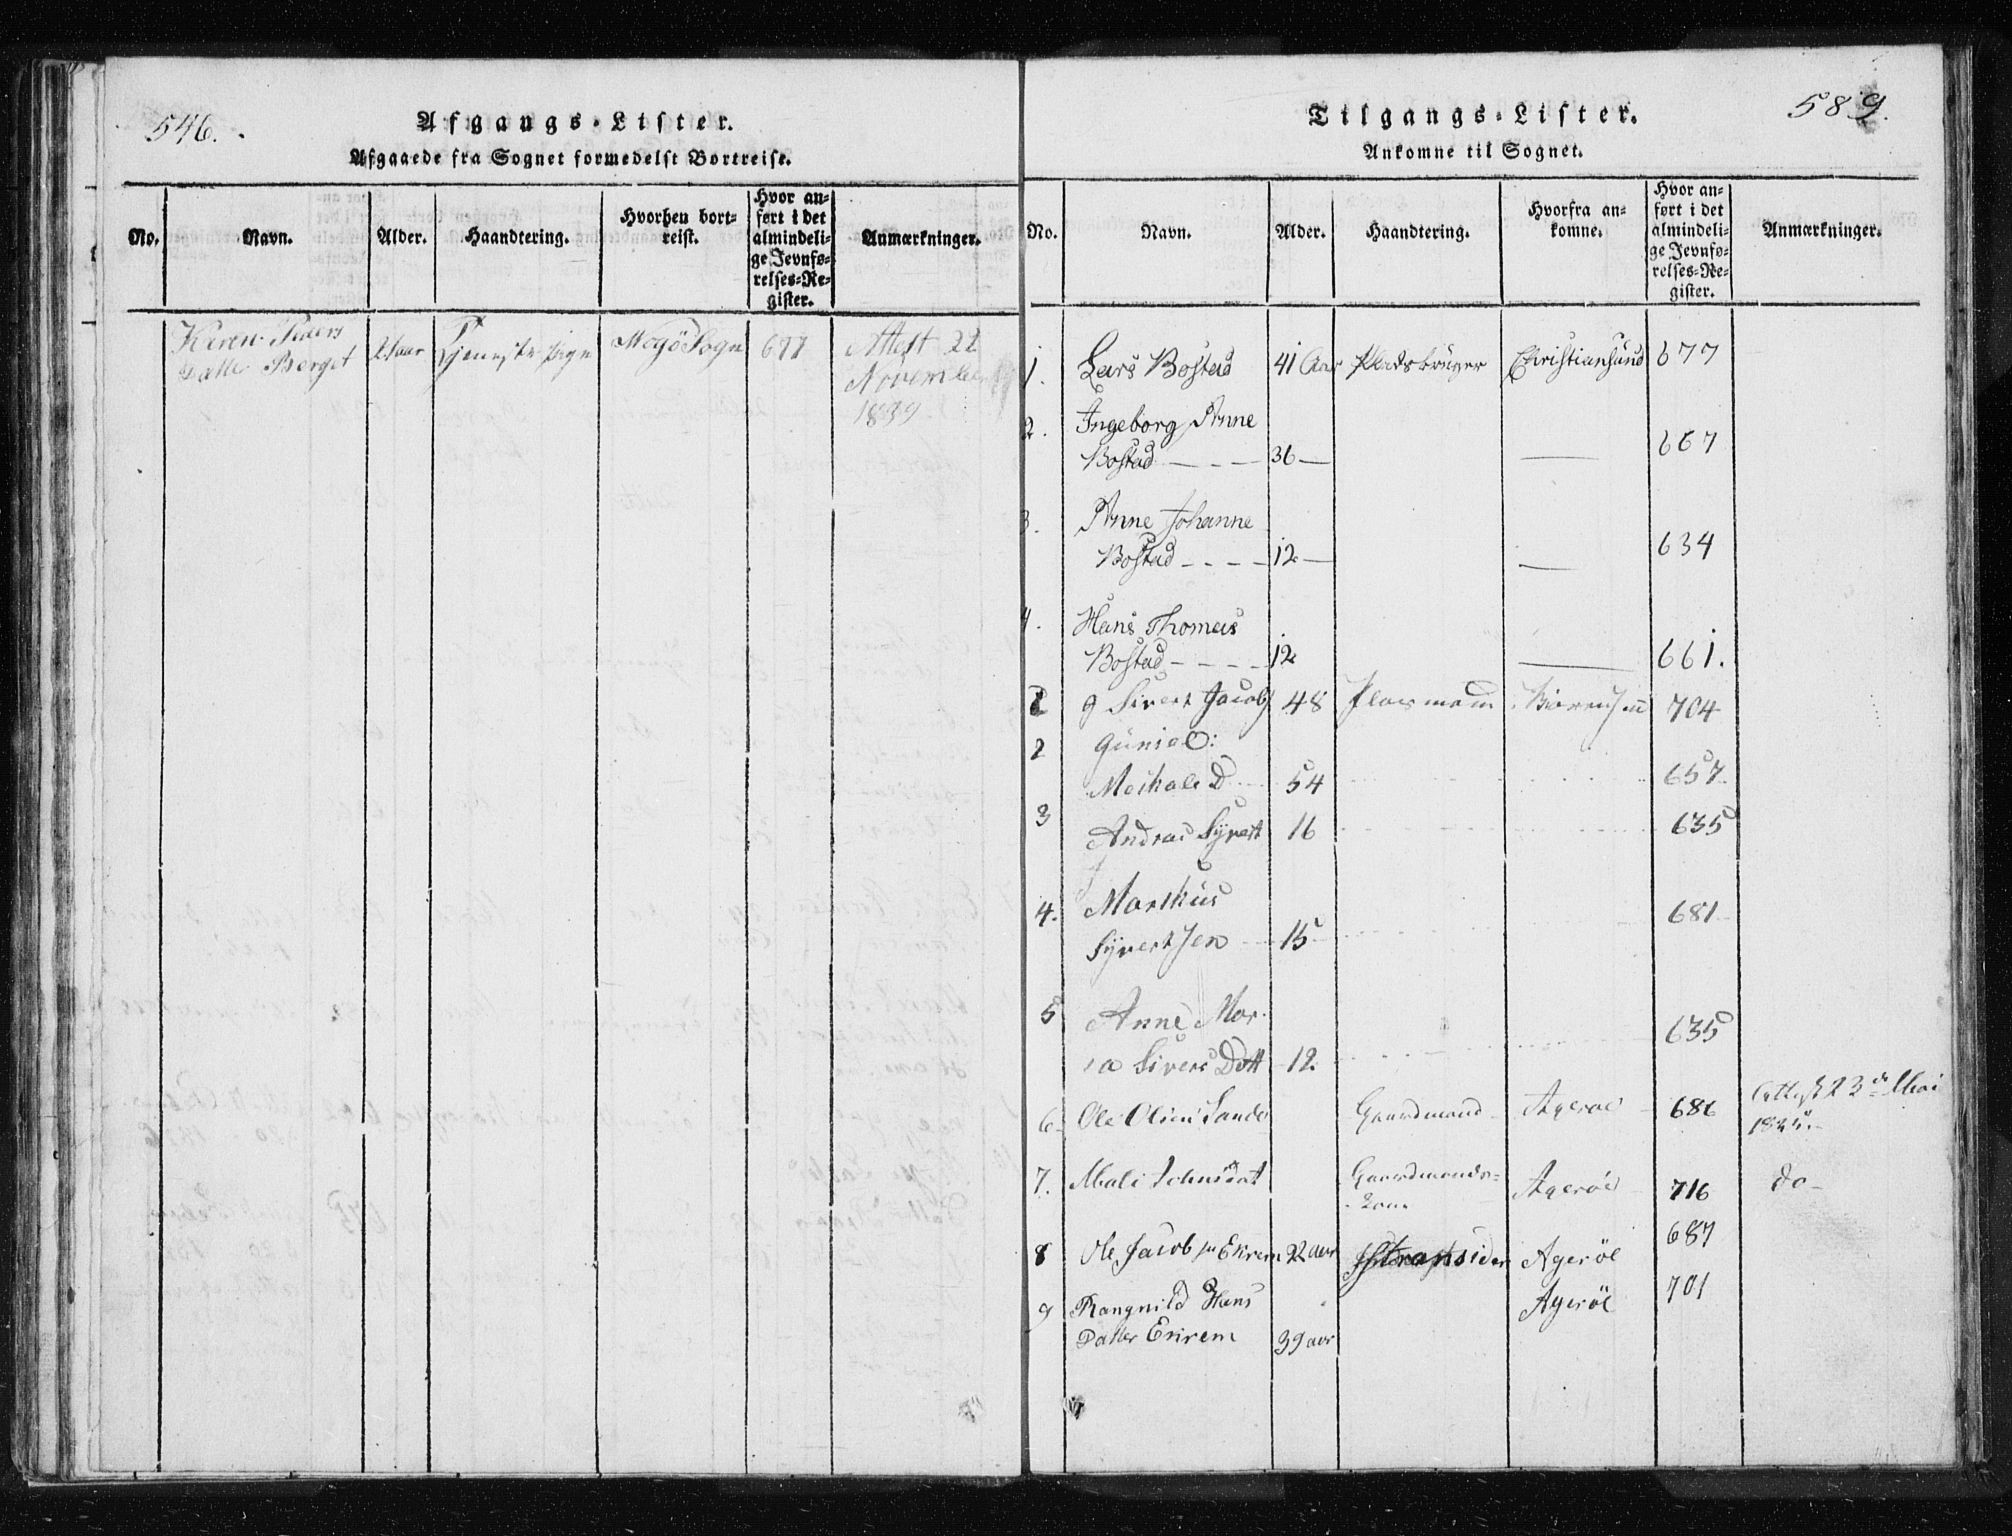 546.
Afgangs-Lister.
Afgaaede fra Sognet formedelst Bortreise.
No.
Navn.
Alder.
Haandtering.
Hvorhen bort-
reist.
Hvor an-
ført i det
almindeli-
ge Jevnfø-
relses-Re-
gister.
Anmærkninger.
Karen Peders
Datte Berget
21 aar
Tjeneste Pige
Sogn
677
Attest 22
November
1839
589.
Tilgangs-Lister.
Ankomne til Sognet.
No.
Navn.
Alder.
Haandtering.
Hvorfra an-
komne.
Hvor an-
ført i det
almindeli-
ge Jevnfø-
relses-Re-
gister.
Anmærkninger.
1. Lars Bostad 41 Aar Christiansund 677
2. Ingeborg Anne
Bostad - - - 36 — — 667
3. Anne Johanne
Bostad - - - - 12 — — 634
4. Hans Thomas
Bostad - - - - 12 — 661.
1 Sivert Jacobs 48 704
2
D 54 657
3 Andras Syvert 16 635
4. Markus
Syvertsen 15 681
5 Anne Mar
ia Sivers Dott 12. 635
6. Ole Olsen Sande Gaardmand Agerøe 686 Attest 23de Mai
7. Mali Gaardmands- Agerøe 716 do
Kone
8 Ole Jacobsen Ekrem 22 aar Agerøe 687
9 Rangnild Hans Agerøe 701
Datter Ekrem 39 aar